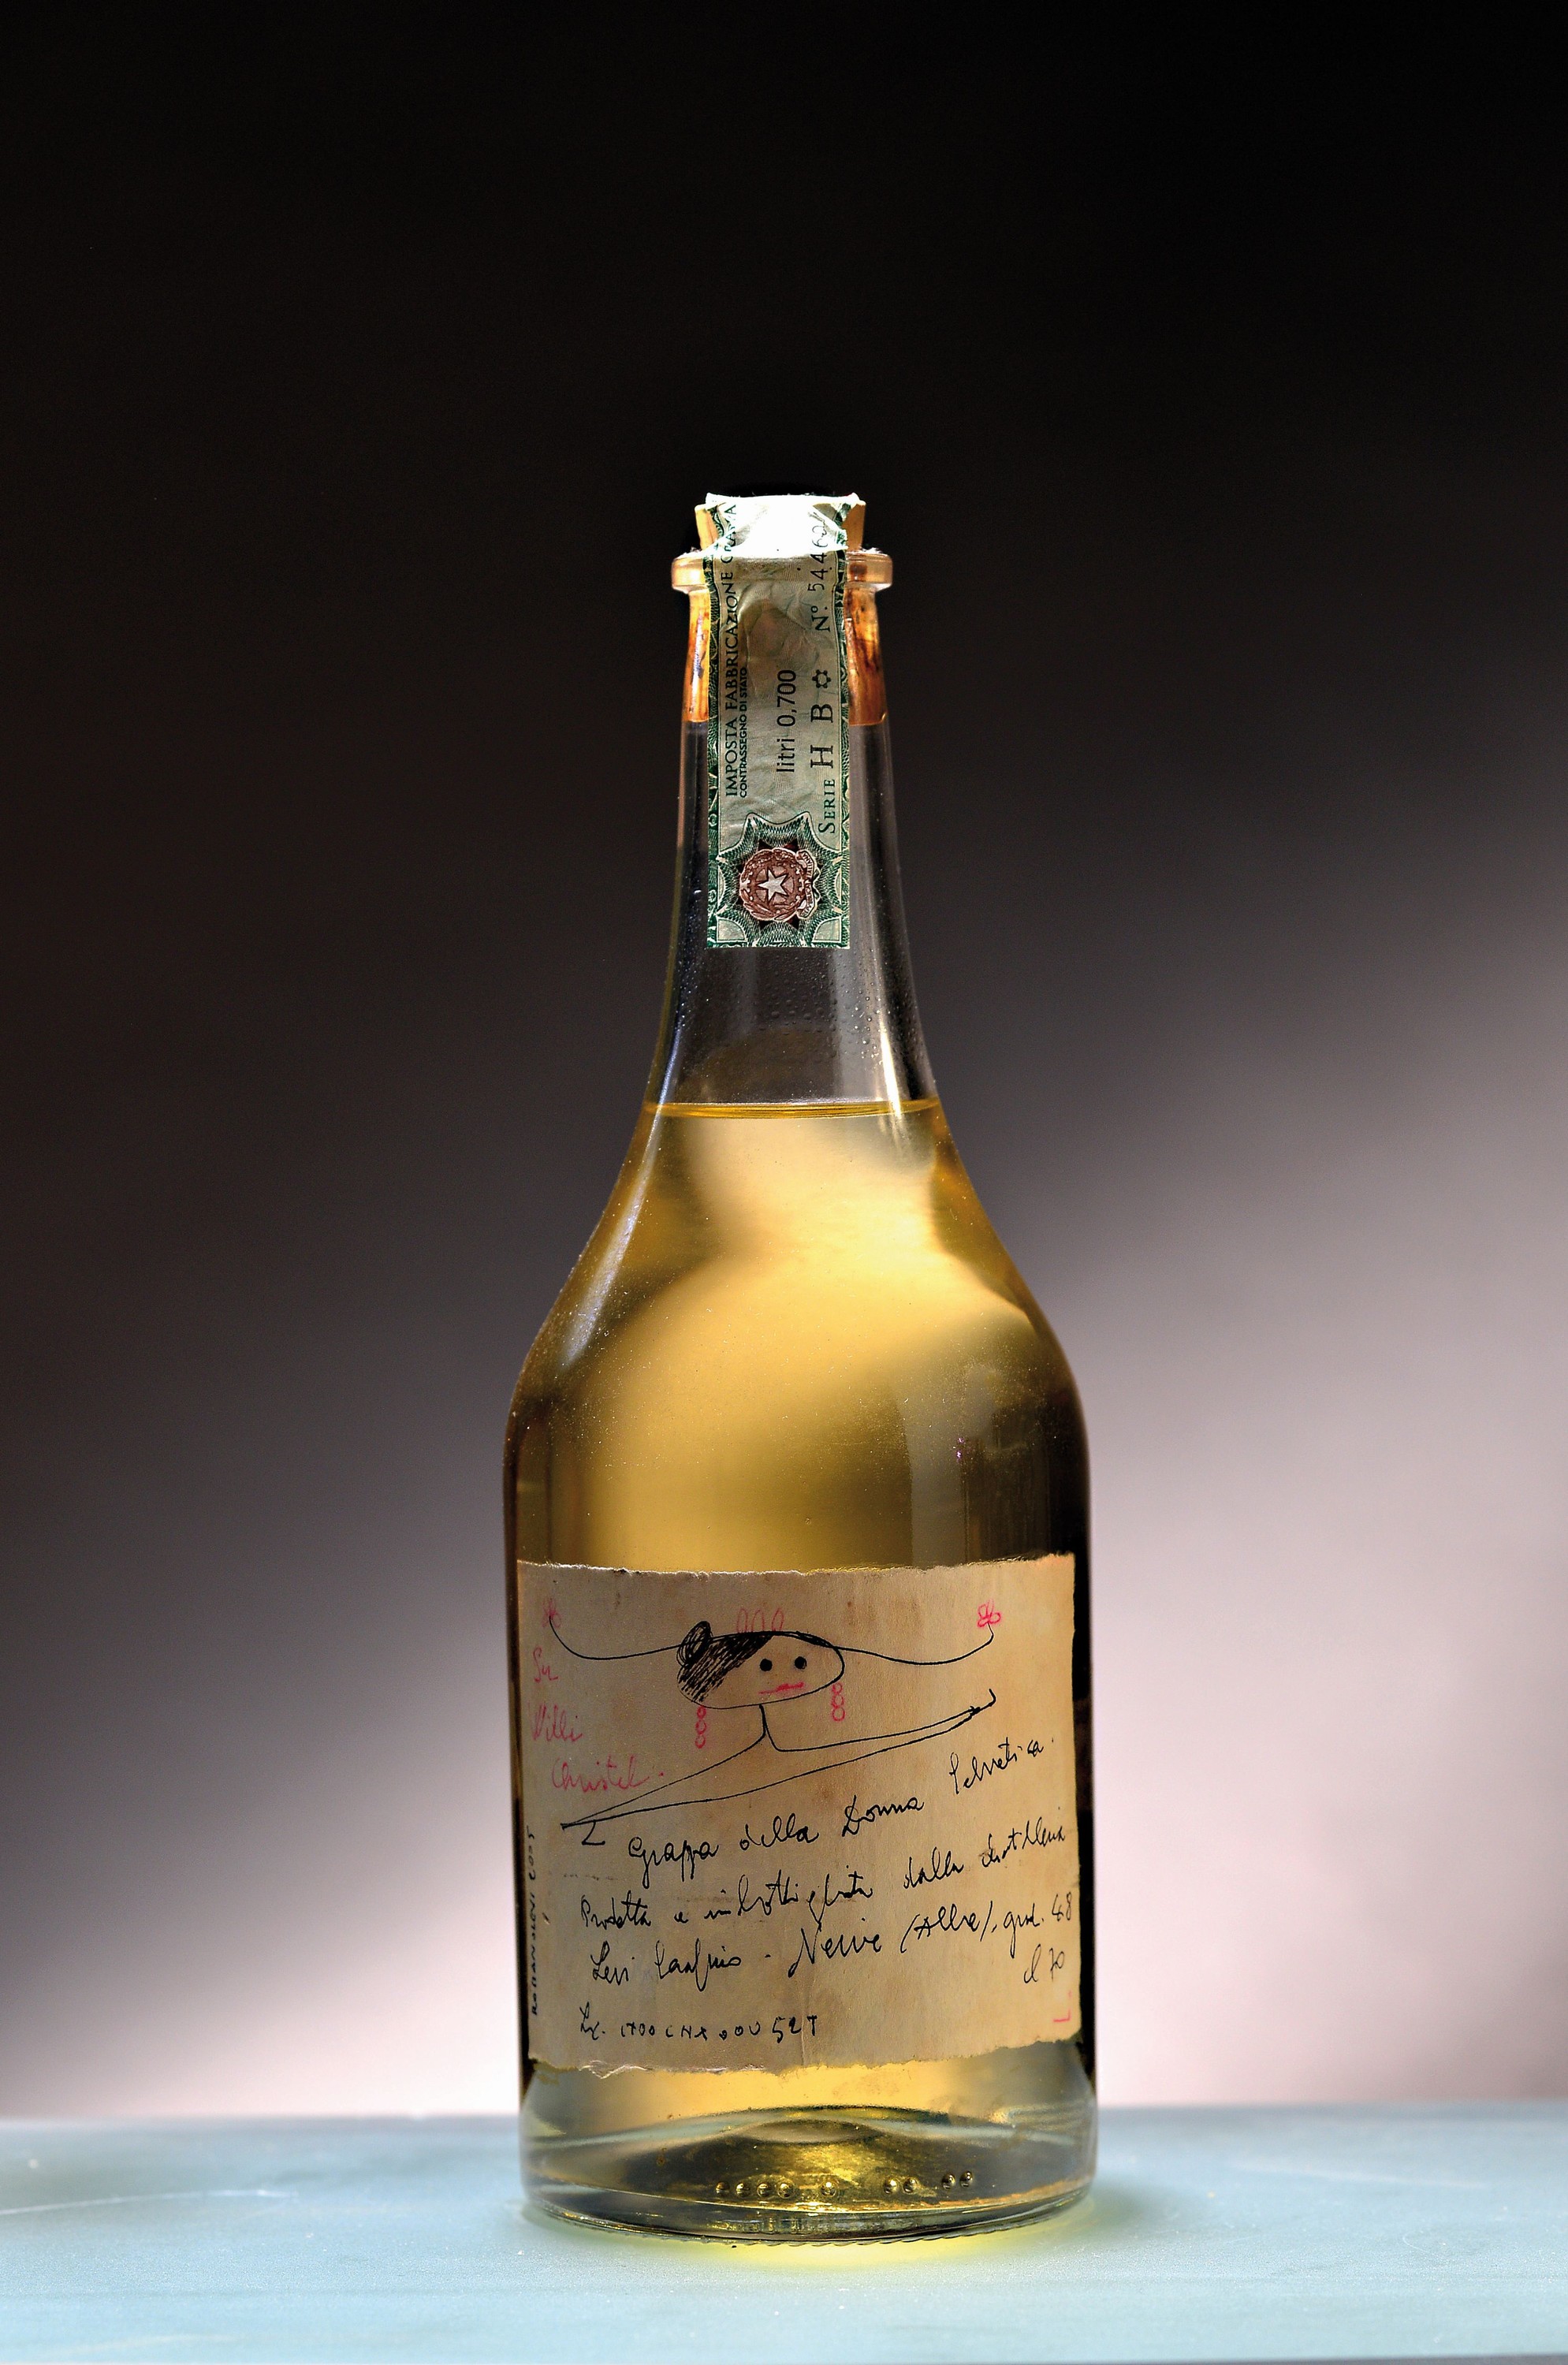 IMPOSTA FABBRICAZIONE GRAPPA
CONTRASSEGNO DI STATO
litri 0,700
SERIE H B N° 5446
Su
Villi
Christel.
Grappa della Donna Selvatica.
Prodotta e imbottigliata dalla distilleria
Levi Serafino - Neive (Alba), grad. 48
cl 70
Lic. UTOO CNX OOU 52T
ROMANO LEVI 2003